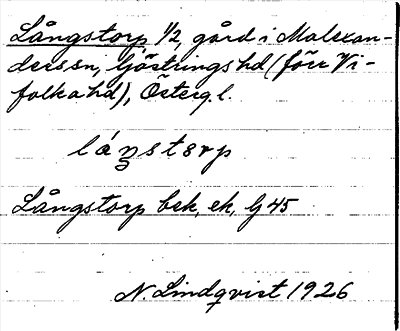 Långstorp 1/2, gård i Malexan-
ders sn, Göstrings hd (förr Vi-
folka hd), Österg. l.
låŋstorp
Långstorp bek, ek, G 45
N. Lindqvist 1926